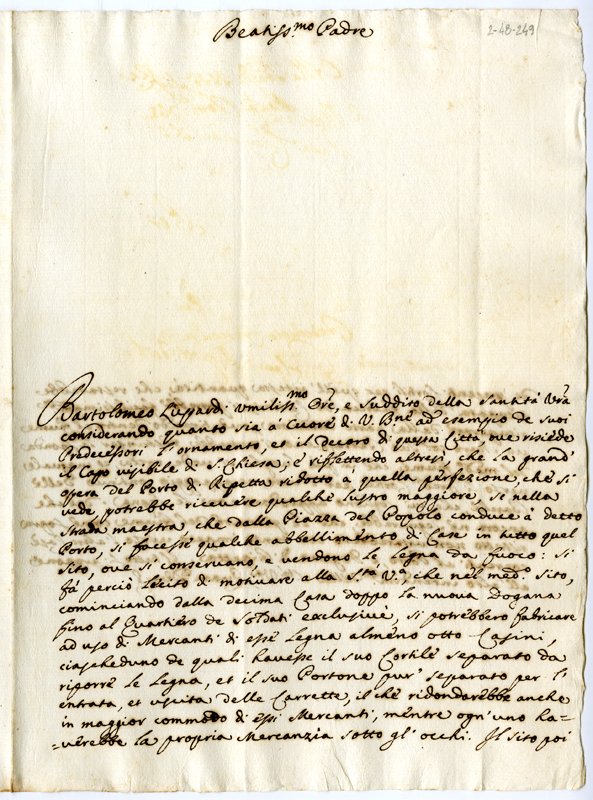 Beatiss.mo Padre
2-48-249
Bartolomeo Lussardi Umiliss.mo Ore, e Suddito della Santità Vrã
considerando quanto sia à Cuore di V. Bne ad esempio de suoi
Predecessori l'ornamento, et il decoro di questa Città, ove risiede
il Capo visibile di S. Chiesa; e riflettendo altresì, che la grand'
opera del Porto di Ripetta ridotto à quella perfezione, che si
vede, potrebbe ricevere qualche lustro maggiore, si nella
strada maestra che dalla Piazza del Popolo conduce à detto
Porto, si facesse qualche abbellimento di Case in tutto quel
sito, ove si conservano, e vendono le Legna da fuoco: si
fà perciò lecito di motivare alla S.tà V.ã, che nel med.o sito,
cominciando dalla decima Casa doppo la nuova Dogana
fino al Quartiero de Soldati exclusivè, si potrebbero fabricare
ad uso di Mercanti di esse Legna almeno otto Casini,
ciascheduno de quali havesse il suo Cortile separato da
riporre le Legna, et il suo Portone pur' separato per l'
entrata, et uscita delle Carrette, il che ridondarebbe anche
in maggior commodo di essi Mercanti, mentre ogn'uno ha-
-verebbe la propria Mercanzia sotto gl'occhi. Il sito poi